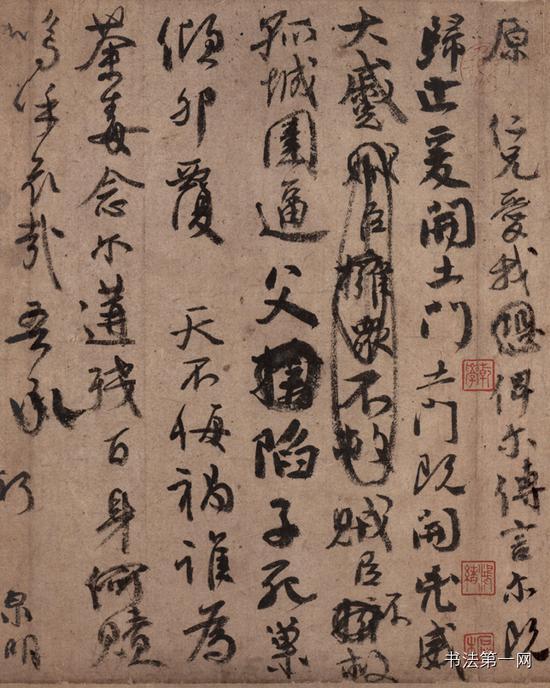 原 仁兄愛我俾尔傳言尔既
歸止爰開土門土門既開凶威
大蹙賊臣擁衆不救賊臣不救
孤城圍逼父陷子死巢
傾卵覆 天不悔禍誰為
荼毒念尔遘殘百身何贖
嗚呼哀哉吾承
泉明
书法第一网